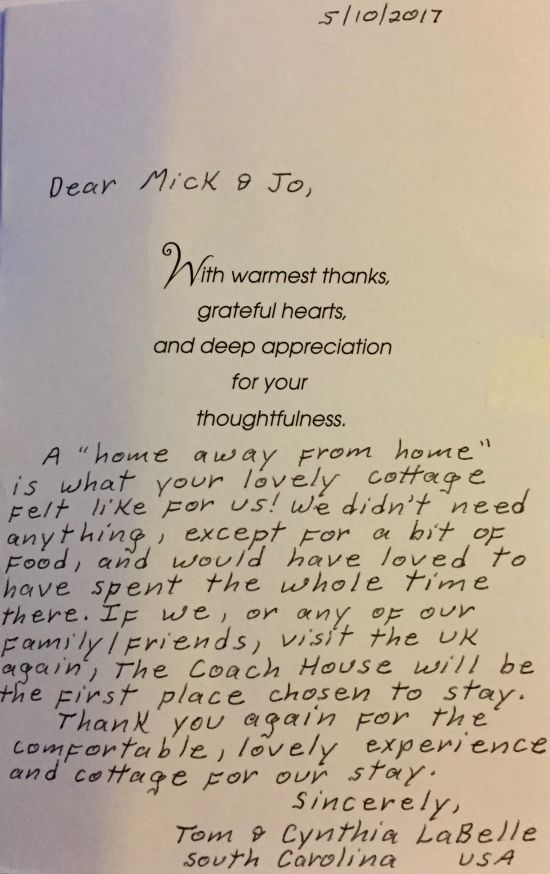 5/10/2017
Dear Mick & Jo,
With warmest thanks,
grateful hearts,
and deep appreciation
for your
thoughtfulness.
A "home away from home"
is what your lovely cottage
felt like for us! We didn't need
anything, except for a bit of
food, and would have loved to
have spent the whole time
there. If we, or any of our
family/friends, visit the UK
again, The Coach House will be
the first place chosen to stay.
Thank you again for the
comfortable, lovely experience
and cottage for our stay.
Sincerely,
Tom & Cynthia LaBelle
South Carolina USA